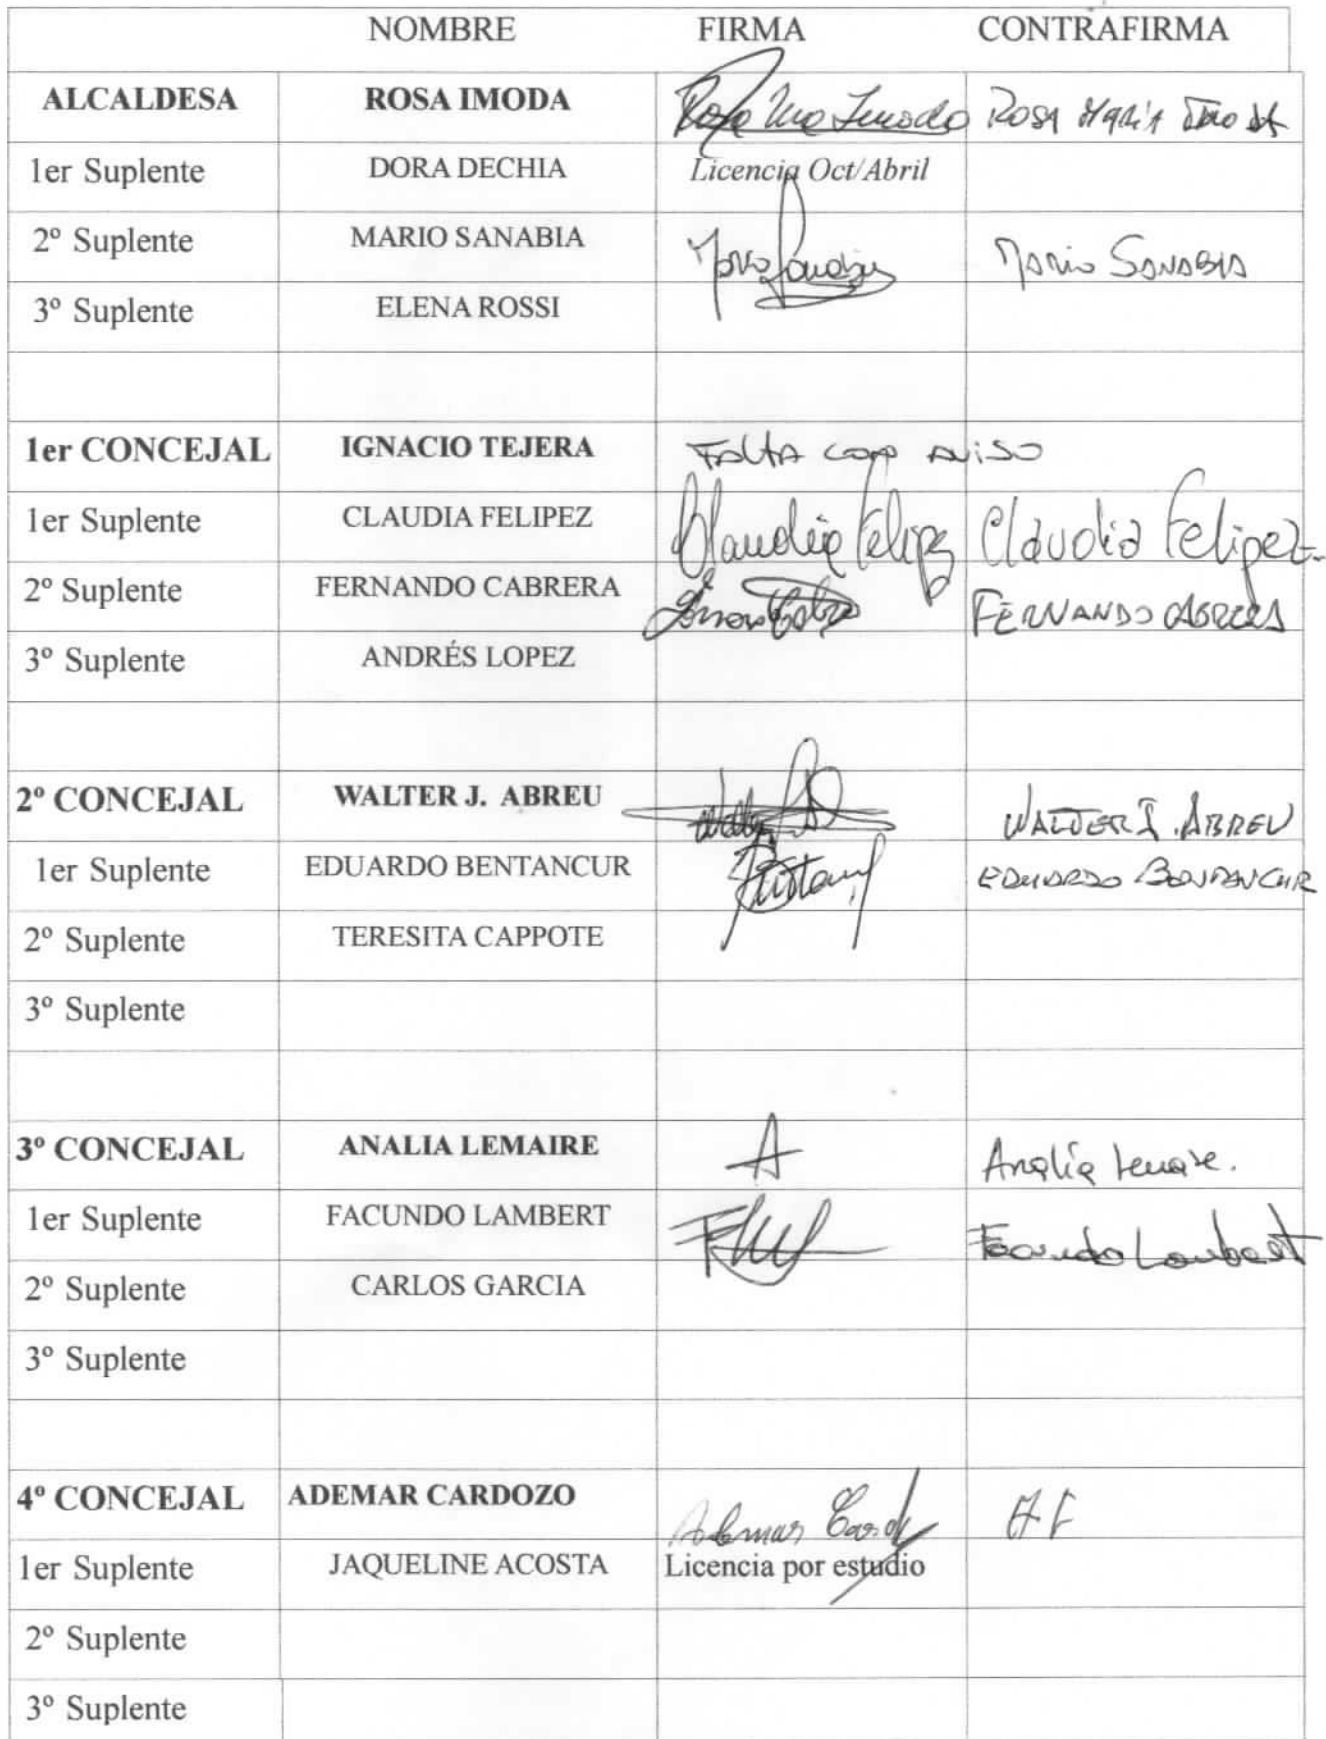 NOMBRE FIRMA CONTRAFIRMA
ALCALDESA ROSA IMODA Rosa Ma Imoda ROSA MARÍA
1er Suplente DORA DECHIA Licencia Oct/Abril
2º Suplente MARIO SANABIA Mario SANABIA
3º Suplente ELENA ROSSI
1er CONCEJAL IGNACIO TEJERA FALTA CON AVISO
1er Suplente CLAUDIA FELIPEZ Claudia Felipez Claudia Felipez
2º Suplente FERNANDO CABRERA FERNANDO
3º Suplente ANDRÉS LOPEZ
2º CONCEJAL WALTER J. ABREU WALTER J. ABREU
1er Suplente EDUARDO BENTANCUR EDUARDO BENTANCUR
2º Suplente TERESITA CAPPOTE
3º Suplente
3º CONCEJAL ANALIA LEMAIRE A Analía
1er Suplente FACUNDO LAMBERT Facundo Lambert
2º Suplente CARLOS GARCIA
3º Suplente
4º CONCEJAL ADEMAR CARDOZO Ademar
1er Suplente JAQUELINE ACOSTA Licencia por estudio
2º Suplente
3º Suplente